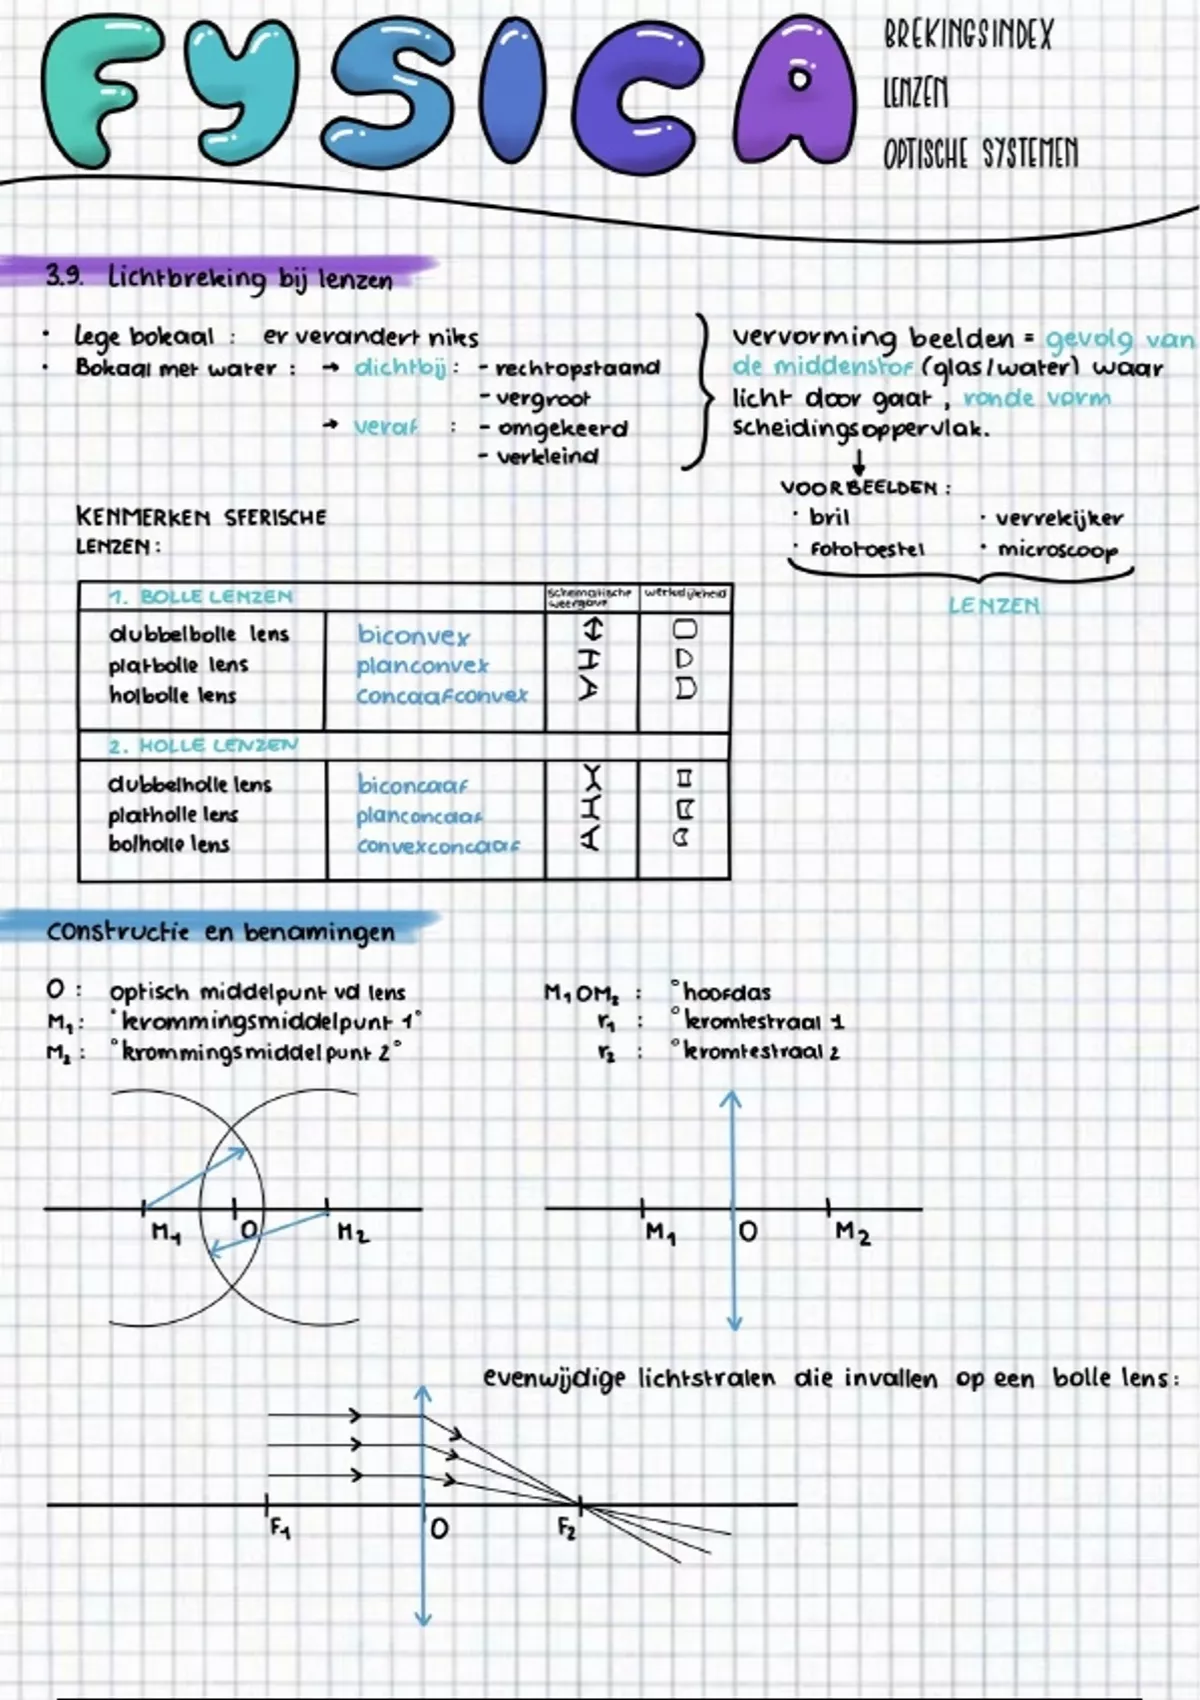 FYSICA
BREKINGSINDEX
LENZEN
OPTISCHE SYSTEMEN
3.9. Lichtbreking bij lenzen
· Lege bokaal : er verandert niks
· Bokaal met water : → dichtbij : - rechtopstaand
- vergroot
→ veraf : - omgekeerd
- verkleind
vervorming beelden = gevolg van
de middenstof (glas/water) waar
licht door gaat , ronde vorm
scheidingsoppervlak.
↓
VOORBEELDEN :
· bril · verrekijker
· fototoestel · microscoop
LENZEN
KENMERKEN SFERISCHE
LENZEN :
1. BOLLE LENZEN schematische weergave werkelijkheid
dubbelbolle lens biconvex
platbolle lens planconvex
holbolle lens concaafconvex
2. HOLLE LENZEN
dubbelholle lens biconcaaf
platholle lens planconcaaf
bolholle lens convexconcaaf
constructie en benamingen
O : optisch middelpunt vd lens
M₁ : °krommingsmiddelpunt 1°
M₂ : °krommingsmiddelpunt 2°
M₁OM₂ : °hoofdas
r₁ : °kromtestraal 1
r₂ : °kromtestraal 2
M₁ O M₂
M₁ O M₂
evenwijdige lichtstralen die invallen op een bolle lens :
F₁ O F₂